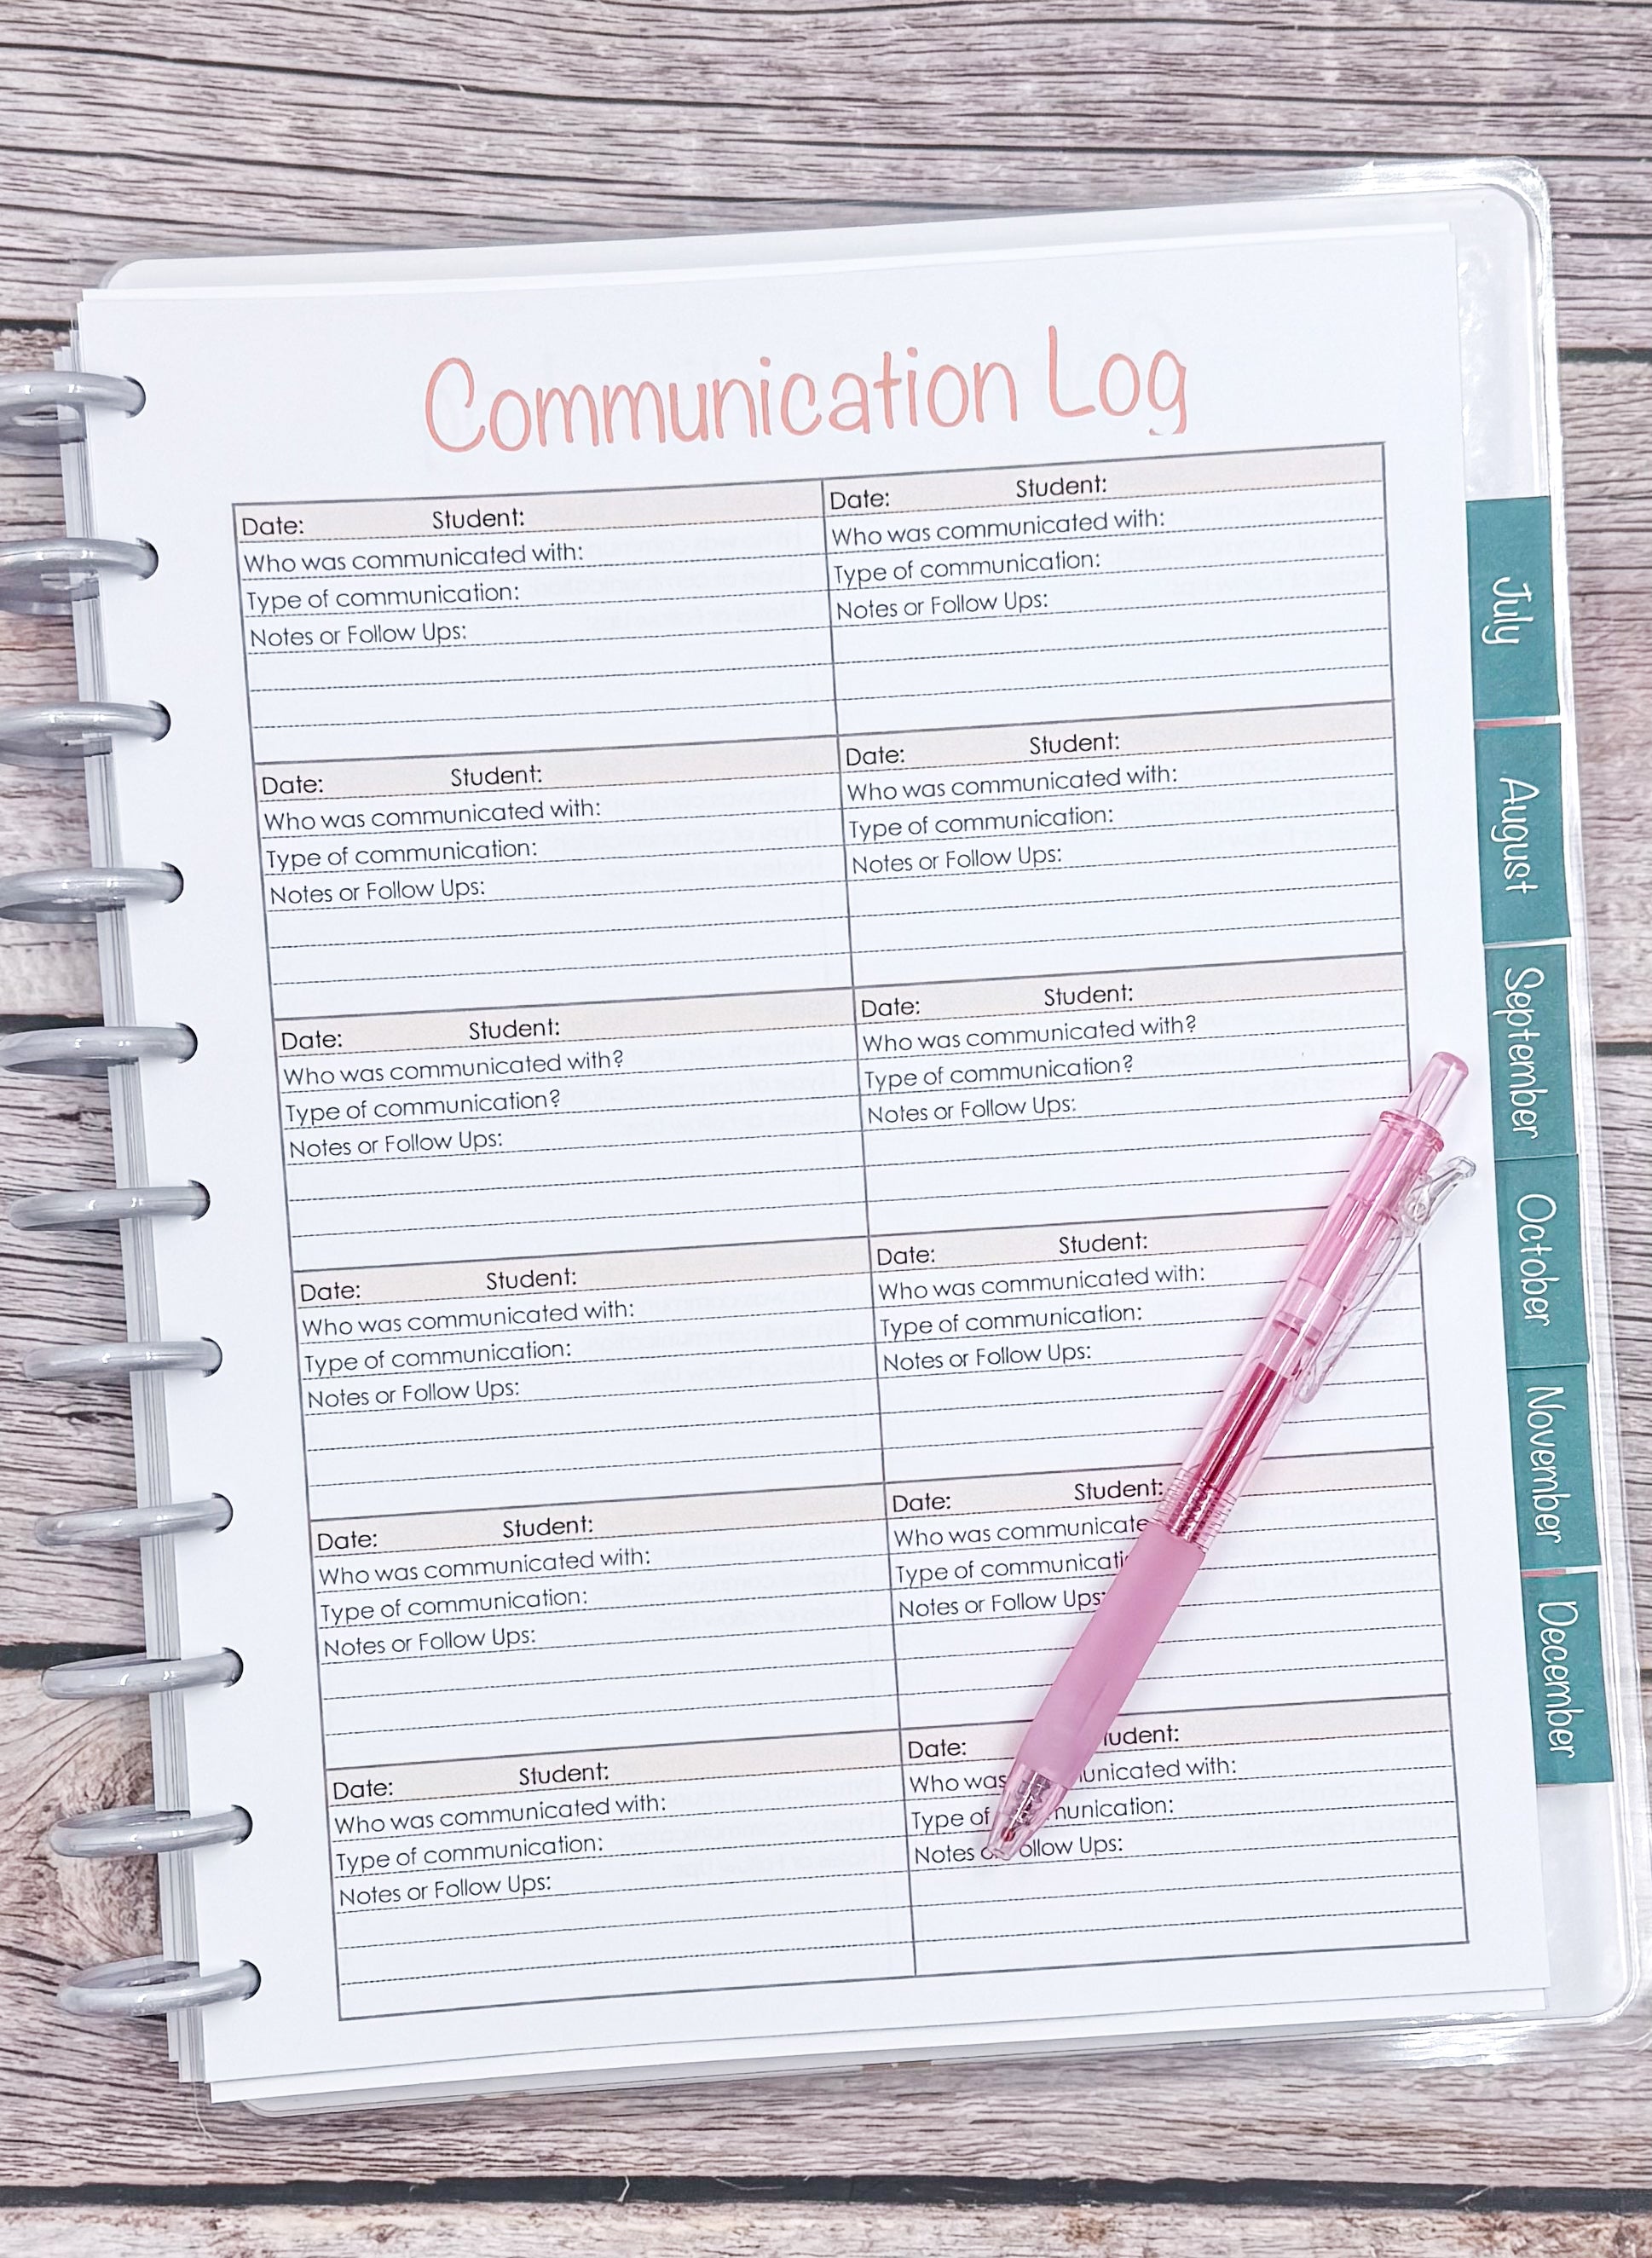 Communication Log
Date: Student:
Who was communicated with:
Type of communication:
Notes or Follow Ups:
Date: Student:
Who was communicated with:
Type of communication:
Notes or Follow Ups:
Date: Student:
Who was communicated with:
Type of communication:
Notes or Follow Ups:
Date: Student:
Who was communicated with:
Type of communication:
Notes or Follow Ups:
Date: Student:
Who was communicated with?
Type of communication?
Notes or Follow Ups:
Date: Student:
Who was communicated with?
Type of communication?
Notes or Follow Ups:
Date: Student:
Who was communicated with:
Type of communication:
Notes or Follow Ups:
Date: Student:
Who was communicated with:
Type of communication:
Notes or Follow Ups:
Date: Student:
Who was communicated with:
Type of communication:
Notes or Follow Ups:
Date: Student:
Who was communicate
Type of communicati
Notes or Follow Ups:
Date: Student:
Who was communicated with:
Type of communication:
Notes or Follow Ups:
Date: udent:
Who was unicated with:
Type of munication:
Notes o ollow Ups:
July
August
September
October
November
December